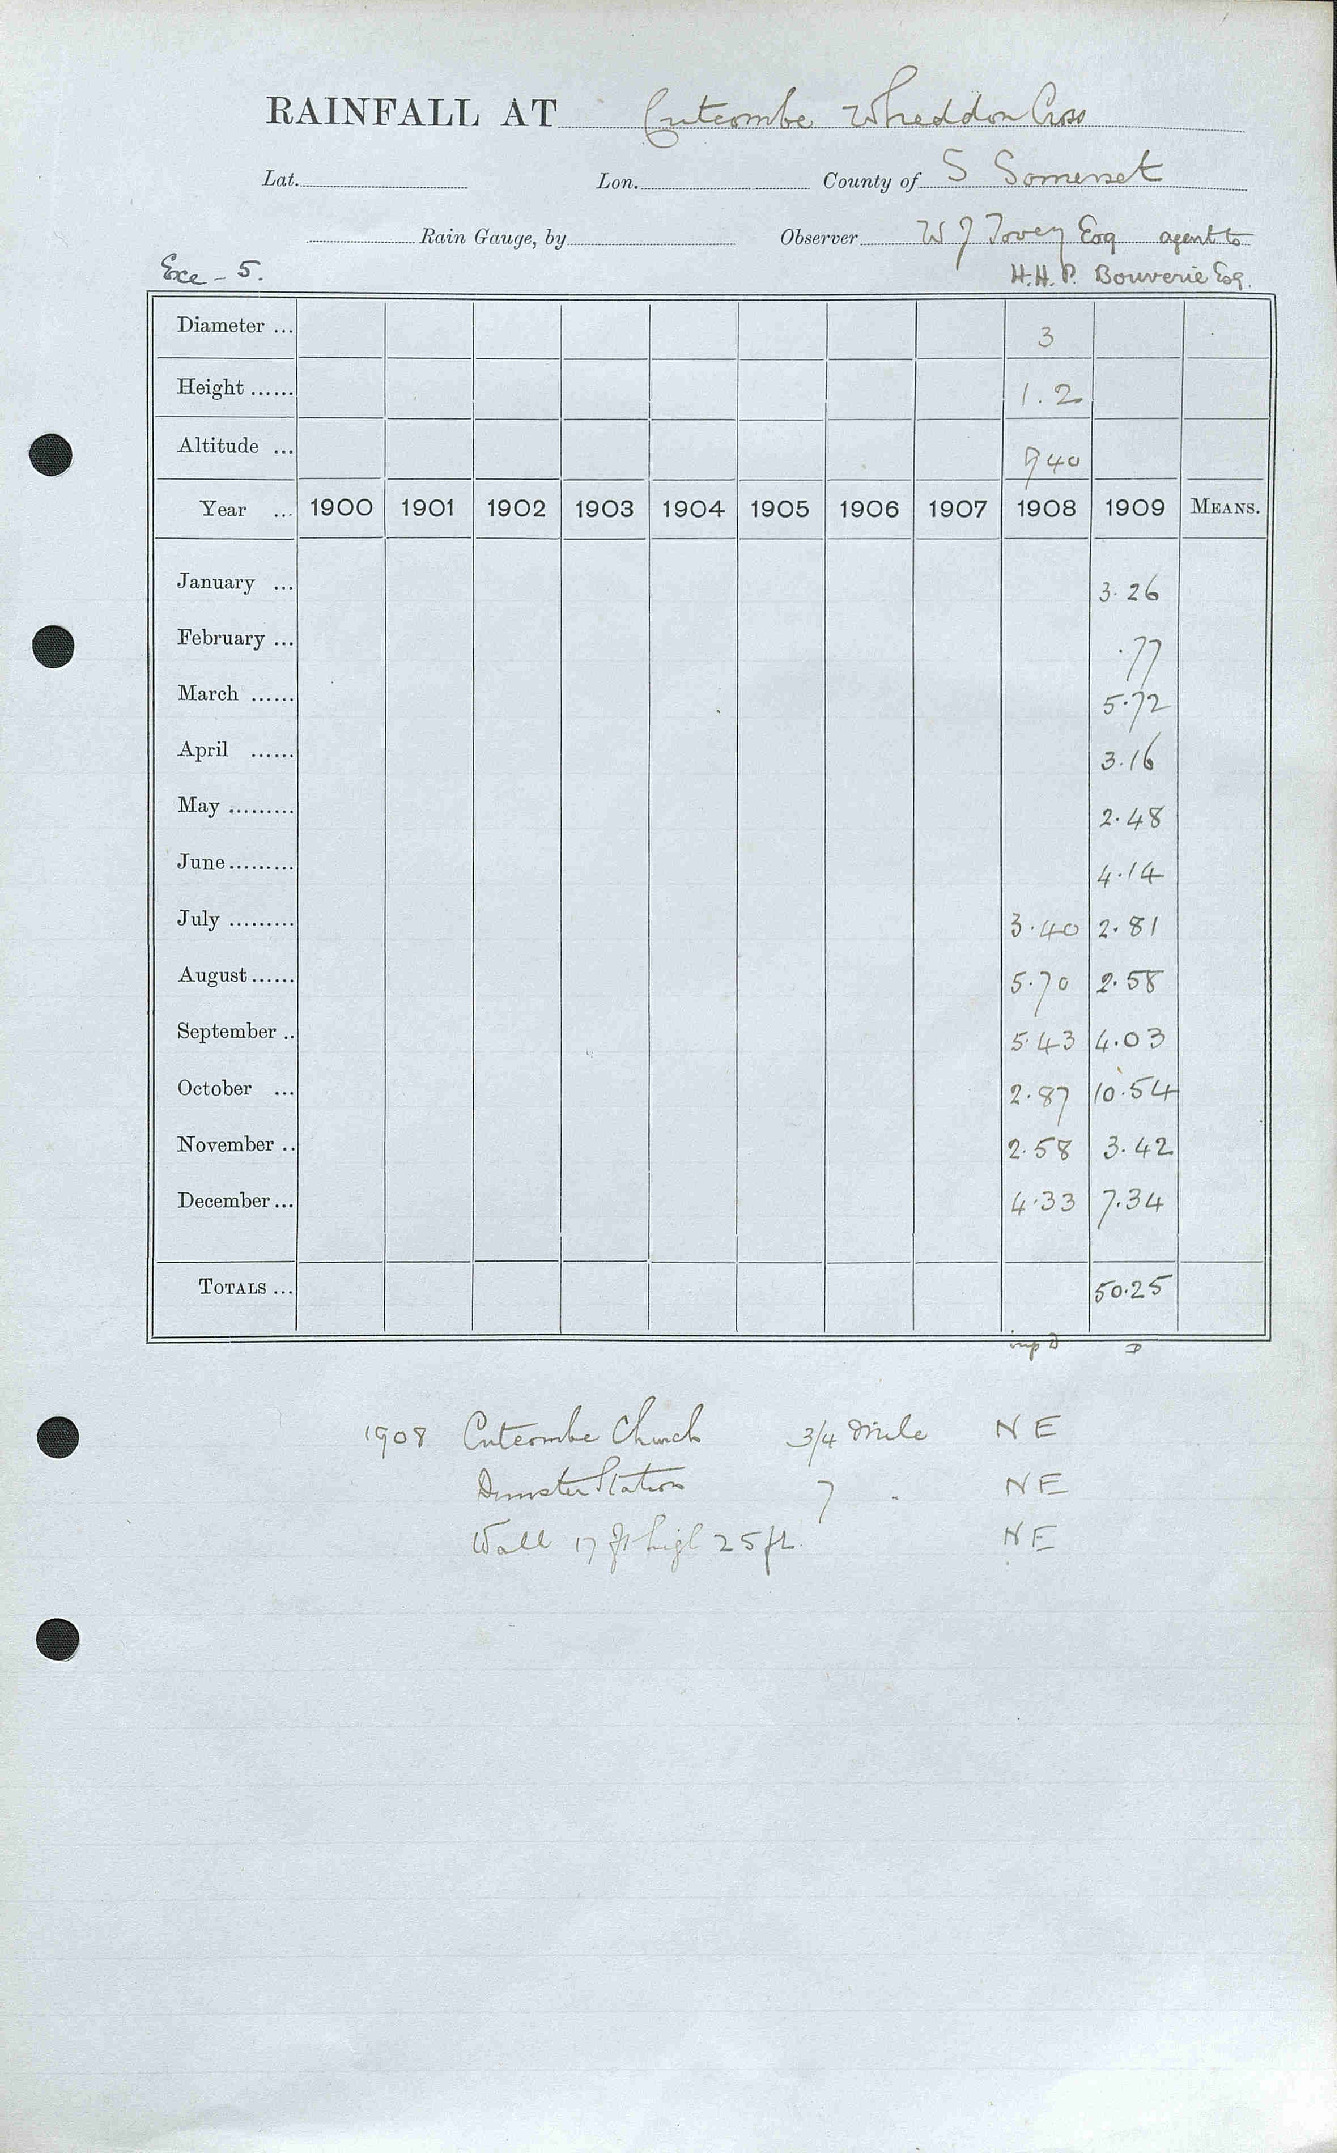 RAINFALL AT Cutcombe Wheddon Cross
Lat. Lon. County of S Somerset
Rain Gauge, by Observer W J Tovey Esq agent to
Exe - 5. H.H.P. Bouverie Esq.
Diameter ... 3
Height ...... 1.2
Altitude ... 940
Year ... 1900 1901 1902 1903 1904 1905 1906 1907 1908 1909 MEANS.
January ... 3.26
February ... .77
March ...... 5.72
April ...... 3.16
May ......... 2.48
June ......... 4.14
July ......... 3.40 2.81
August ...... 5.70 2.58
September .. 5.43 4.03
October ... 2.87 10.54
November .. 2.58 3.42
December ... 4.33 7.34
TOTALS ... 50.25
imp D D
1908 Cutcombe Church 3/4 Mile NE
Dunster Station 7 " NE
Wall 17 ft high 25 ft. NE